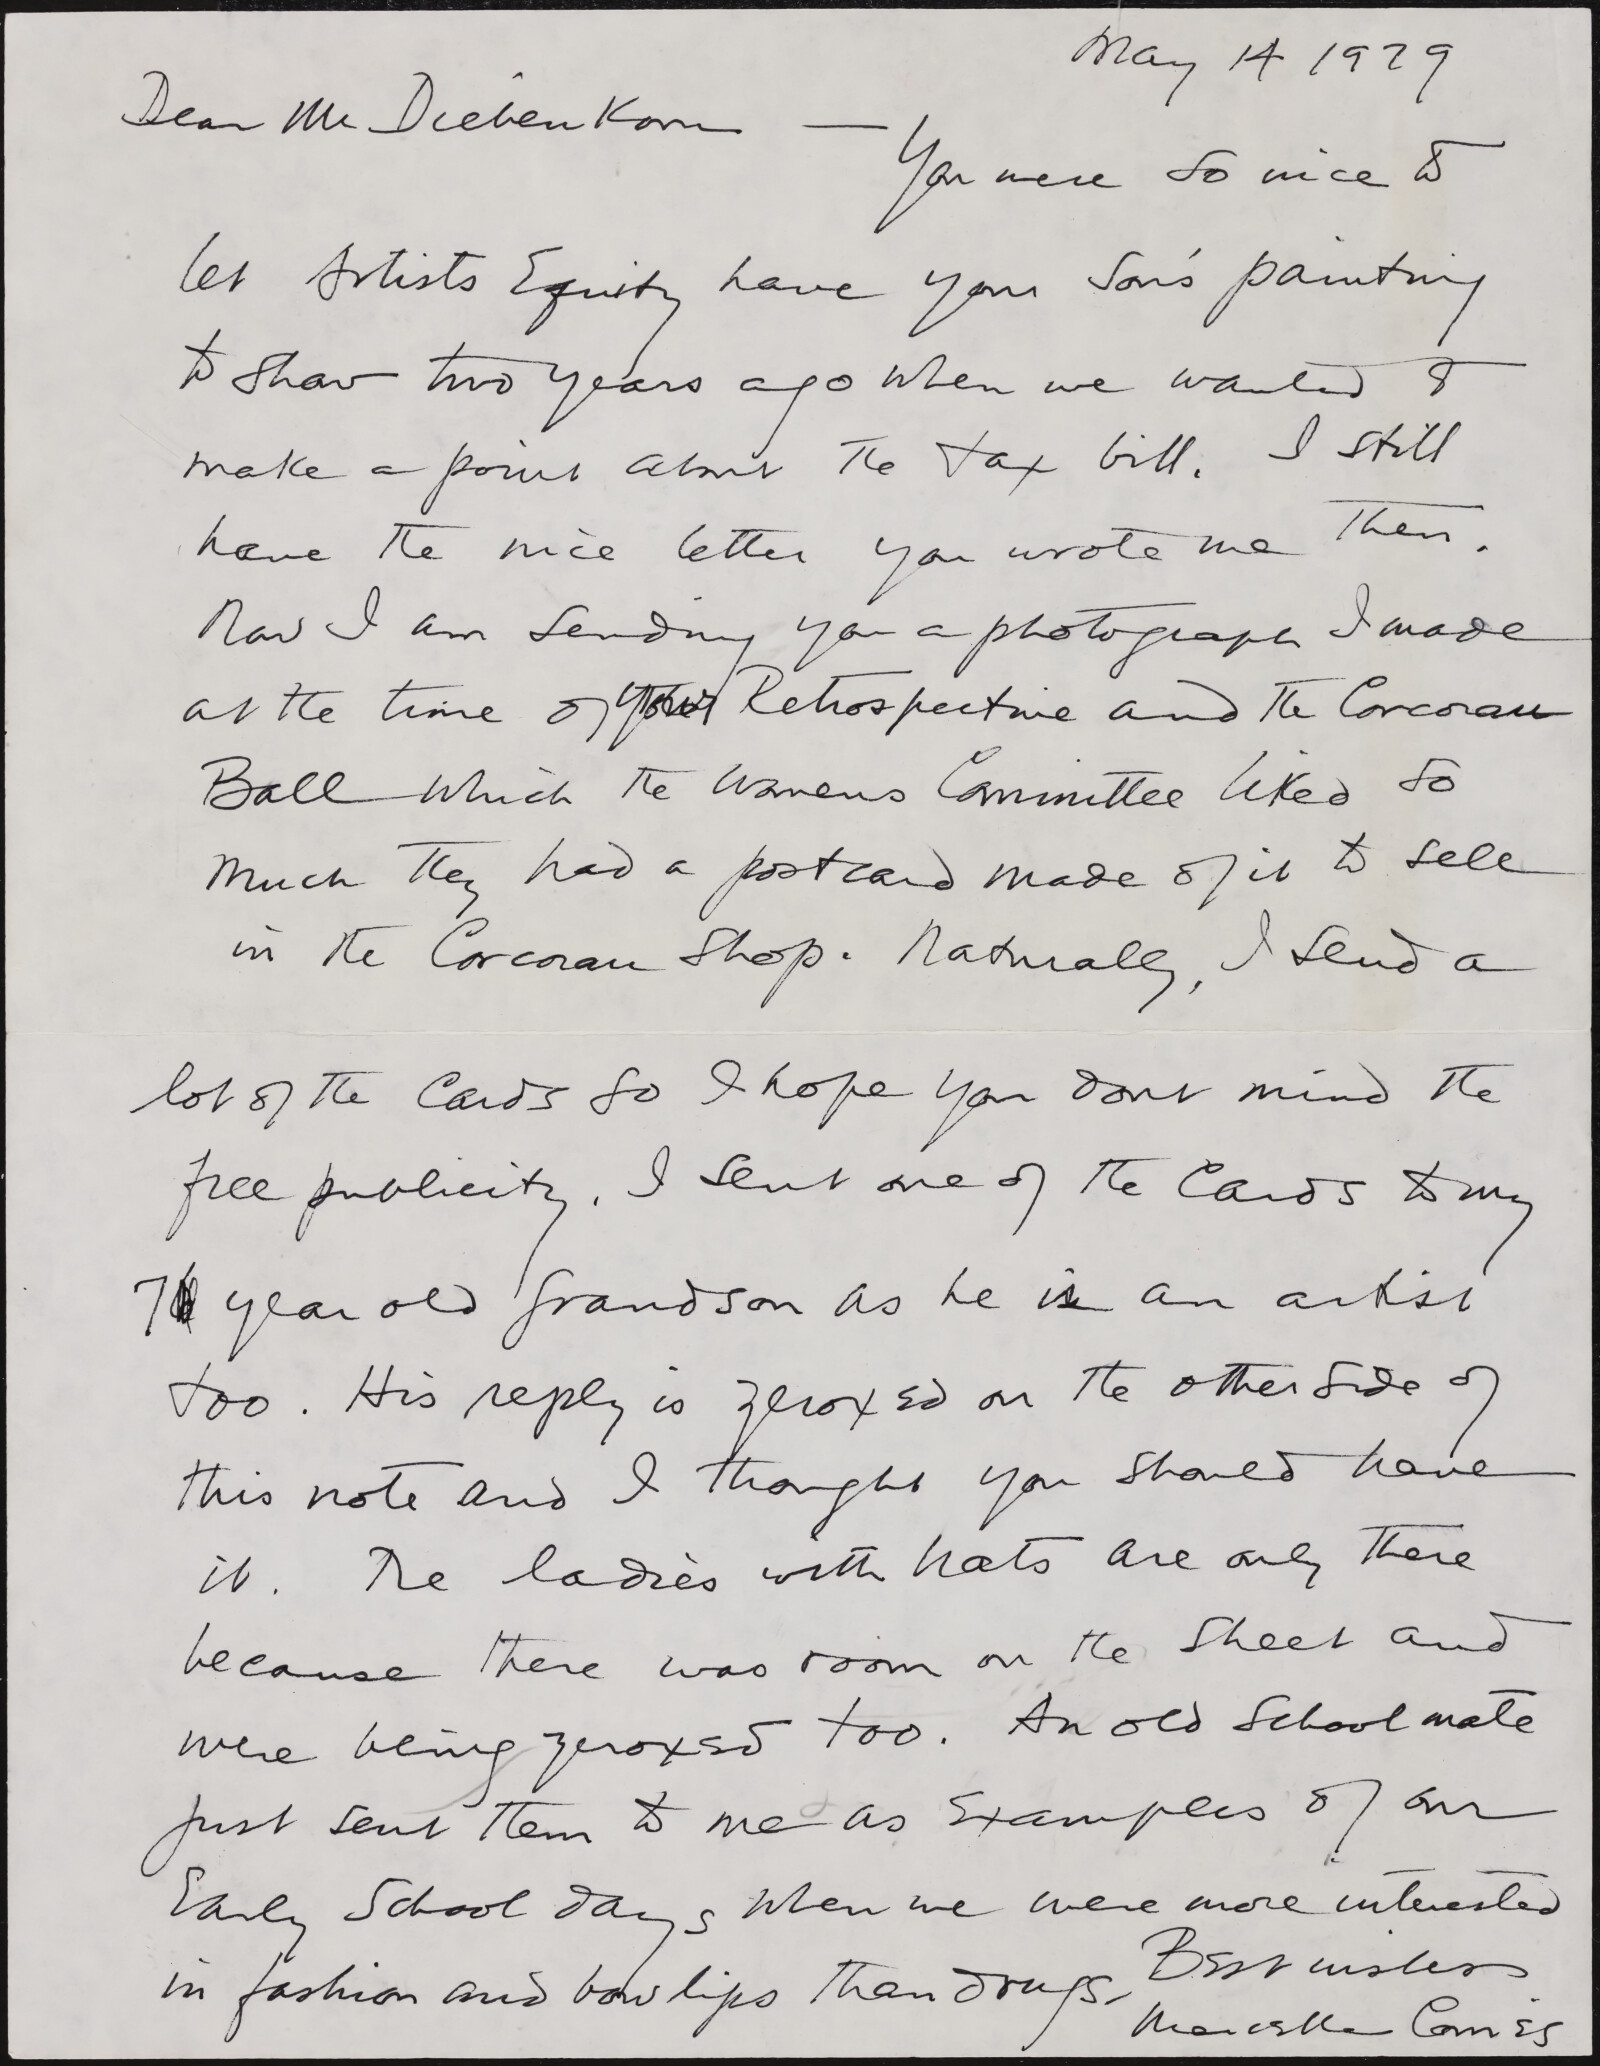 May 14 1979
Dear Mr Diebenkorn —
You were so nice to
let Artists Equity have your son's painting
to show two years ago when we wanted to
make a point about the tax bill. I still
have the nice letter you wrote me then.
Now I am sending you a photograph I made
at the time of your Retrospective and the Corcoran
Ball which the Womens Committee liked so
much they had a postcard made of it to sell
in the Corcoran Shop. Naturally, I send a
lot of the cards so I hope you dont mind the
free publicity. I sent one of the cards to my
7 year old grandson as he is an artist
too. His reply is zeroxed on the other side of
this note and I thought you should have
it. The ladies with hats are only there
because there was room on the sheet and
were being zeroxed too. An old school mate
just sent them to me as examples of our
early school days when we were more interested
in fashion and bow lips than drugs.
Best wishes
Marcella Comès